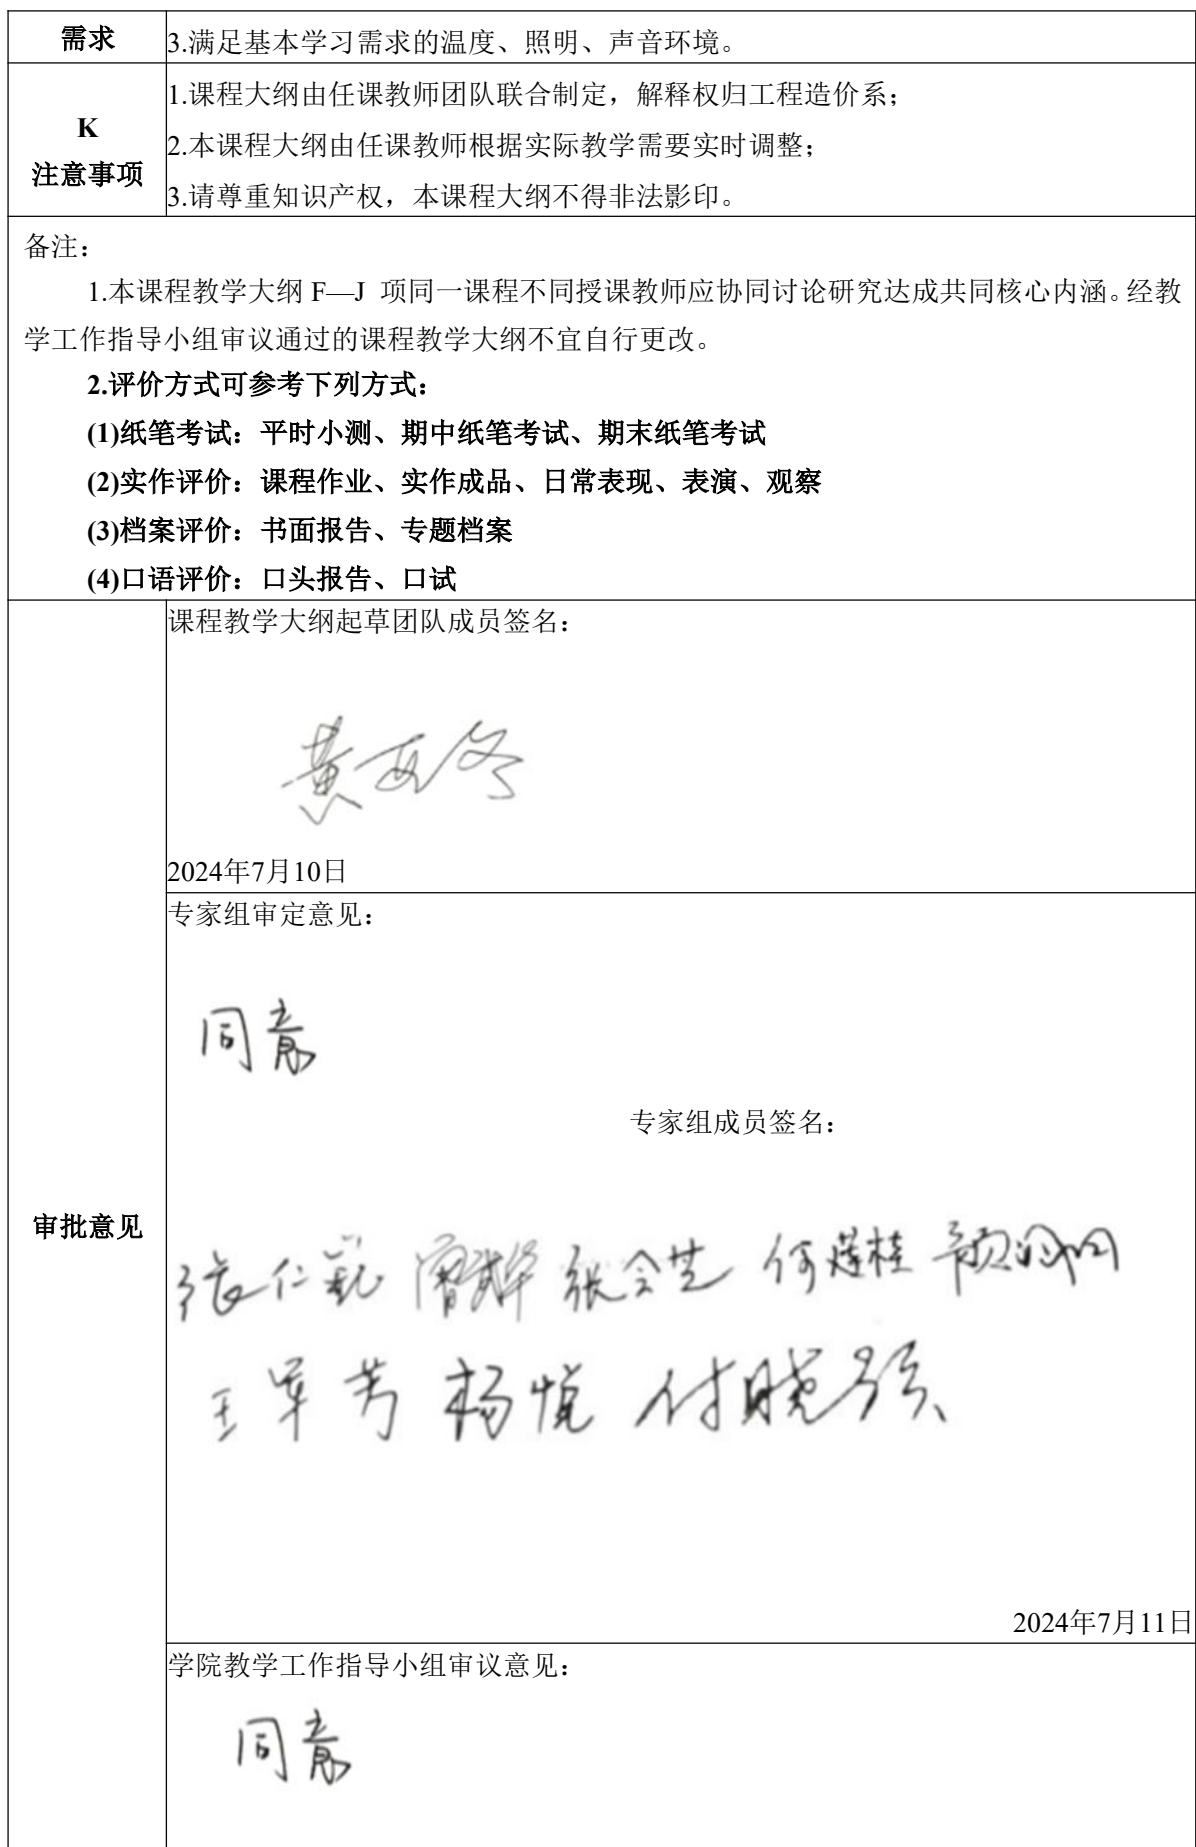 需求
3.满足基本学习需求的温度、照明、声音环境。
K
注意事项
1.课程大纲由任课教师团队联合制定，解释权归工程造价系；
2.本课程大纲由任课教师根据实际教学需要实时调整；
3.请尊重知识产权，本课程大纲不得非法影印。
备注：
1.本课程教学大纲 F—J 项同一课程不同授课教师应协同讨论研究达成共同核心内涵。经教
学工作指导小组审议通过的课程教学大纲不宜自行更改。
2.评价方式可参考下列方式：
(1)纸笔考试：平时小测、期中纸笔考试、期末纸笔考试
(2)实作评价：课程作业、实作成品、日常表现、表演、观察
(3)档案评价：书面报告、专题档案
(4)口语评价：口头报告、口试
审批意见
课程教学大纲起草团队成员签名：
2024年7月10日
专家组审定意见：
同意
专家组成员签名：
何莲桂
王军芳 杨悦 付晓强
2024年7月11日
学院教学工作指导小组审议意见：
同意